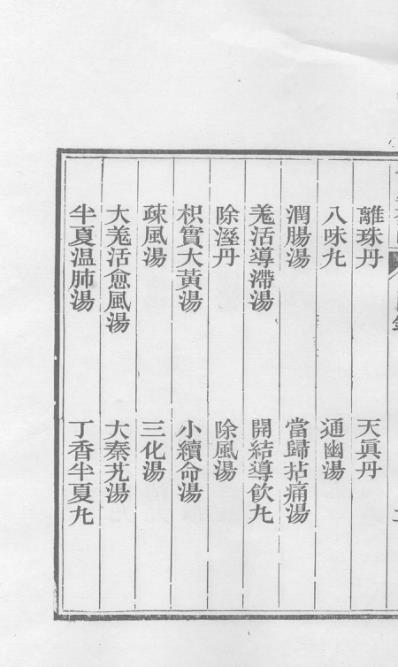 離珠丹 天眞丹
八味丸 通幽湯
潤腸湯 當歸拈痛湯
羗活導滯湯 開結導飲丸
除溼丹 除風湯
枳實大黃湯 小續命湯
疎風湯 三化湯
大羗活愈風湯 大秦艽湯
半夏温肺湯 丁香半夏丸